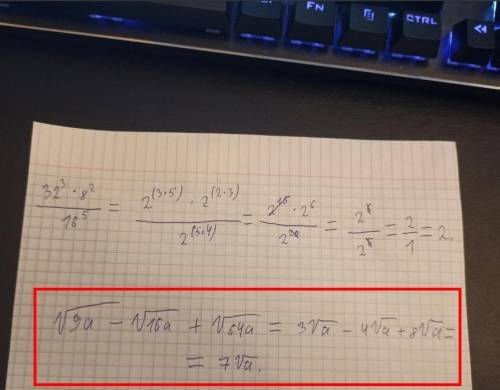 FN
CTRL
32³ · 8² / 16⁵ = 2^(3·5) · 2^(2·3) / 2^(5·4) = 2^15 · 2^6 / 2^20 = 2^6 / 2^5 = 2/1 = 2.
√9a − √16a + √64a = 3√a − 4√a + 8√a =
= 7√a.